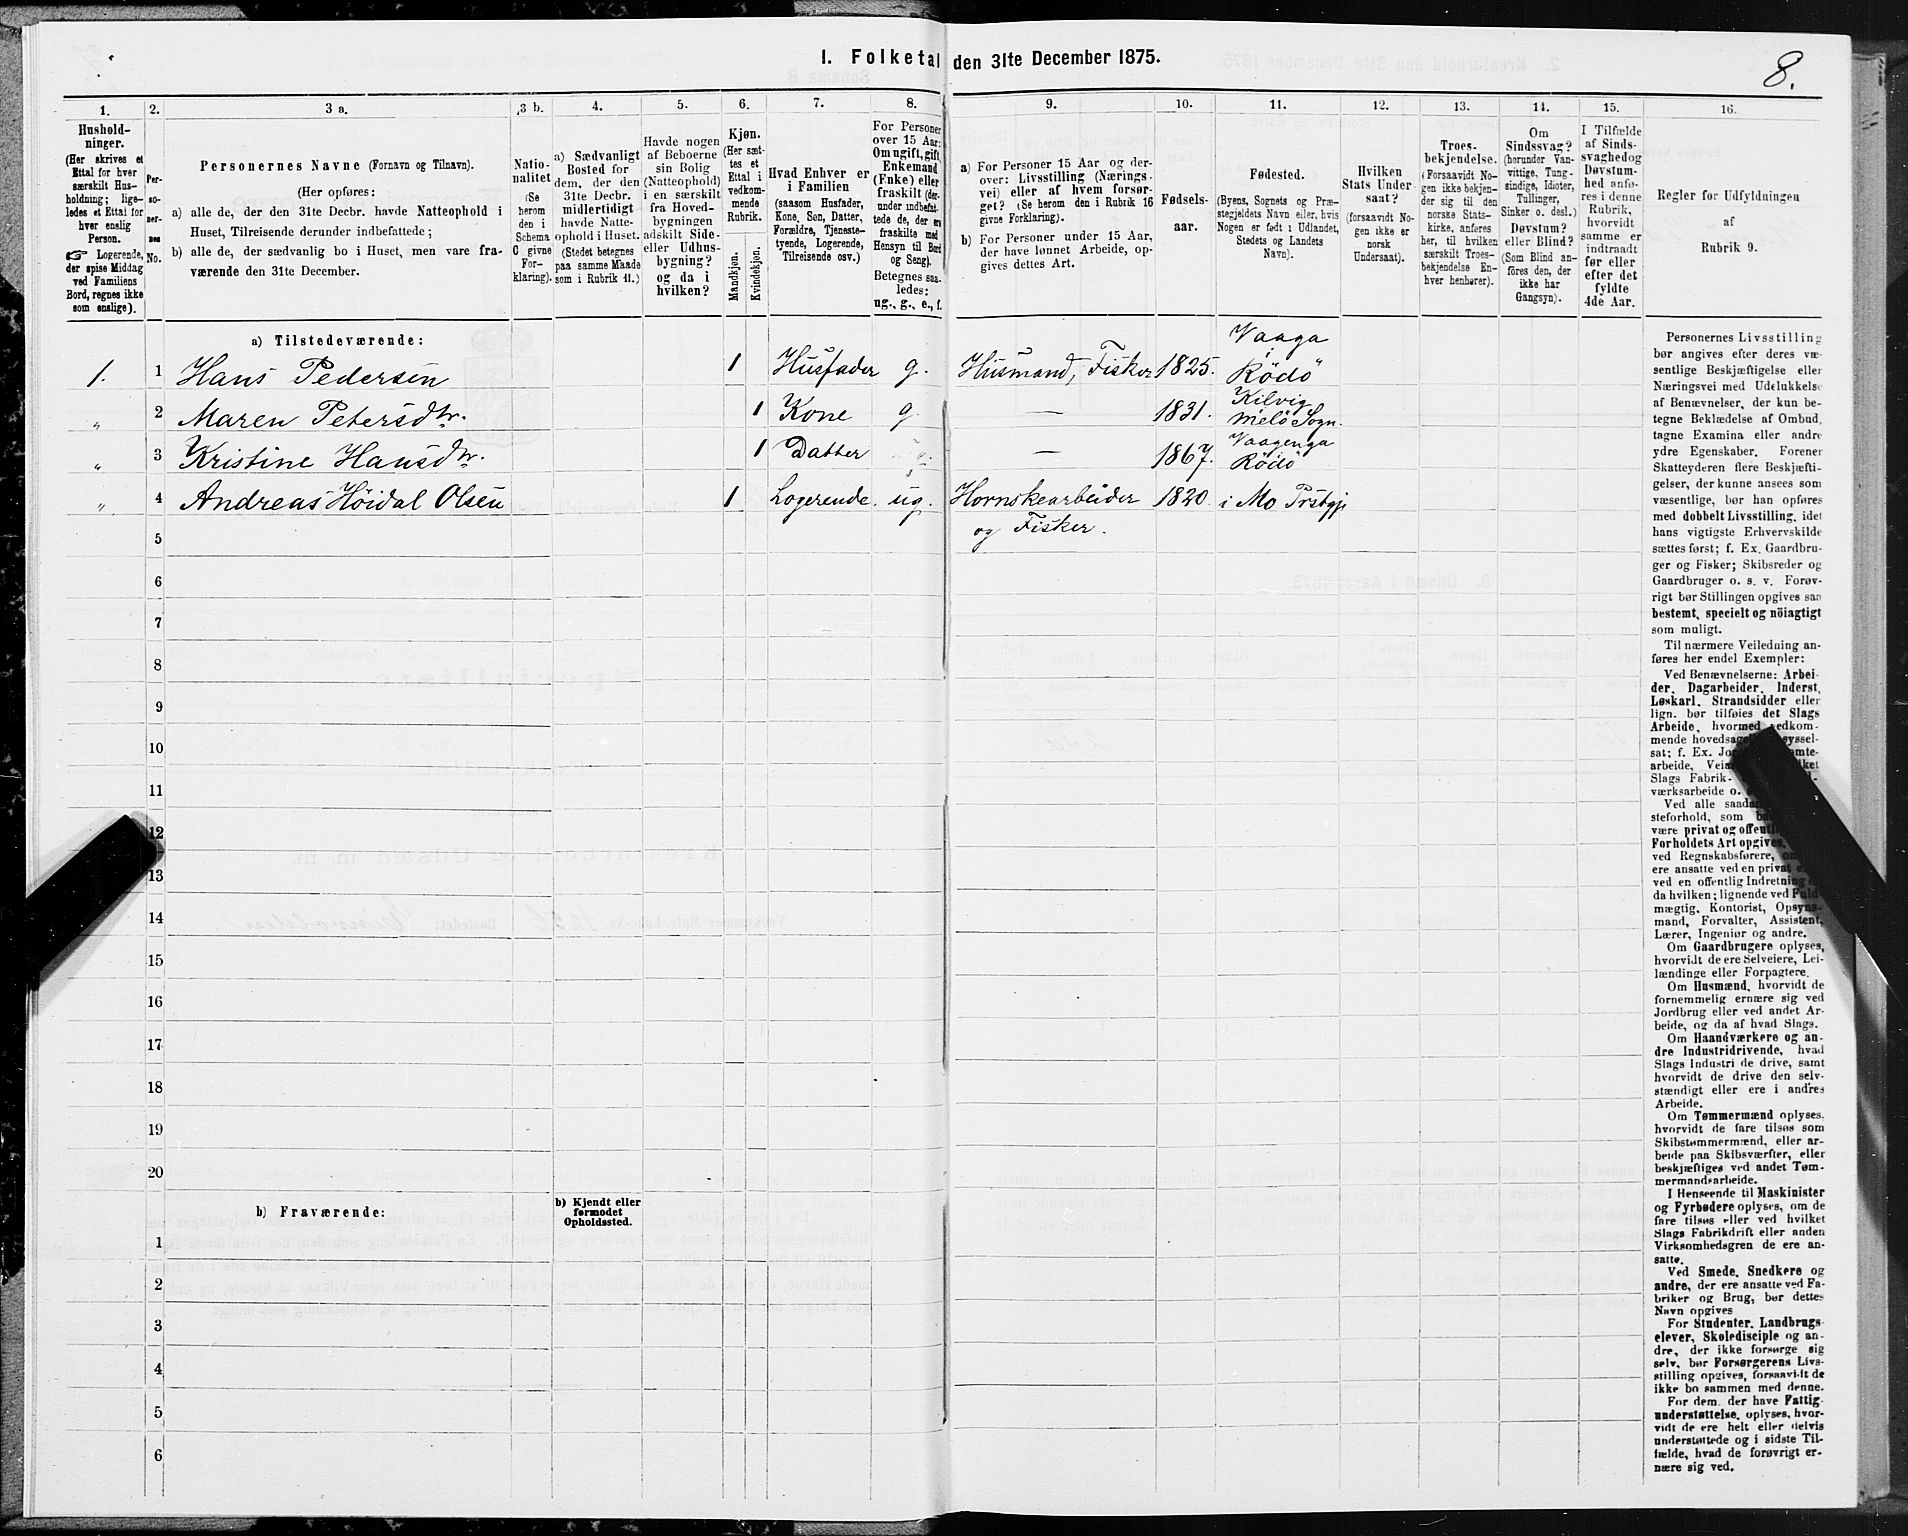 1. Folketal den 31te December 1875.
8.
1.
2.
3 a.
3 b.
4.
5.
6.
7.
8.
9.
10.
11.
12.
13.
14.
15.
16.
Hushold-
ninger.
(Her skrives et
Ettal for hver
særskilt Hus-
holdning; lige-
ledes et Ettal for
hver enslig
Person.
☞ Logerende,
der spise Middag
ved Familiens
Bord, regnes ikke
som enslige).
Per-
so-
ner-
nes
No.
Personernes Navne (Fornavn og Tilnavn).
(Her opføres:
a) alle de, der den 31te Decbr. havde Natteophold i
Huset, Tilreisende derunder indbefattede;
b) alle de, der sædvanlig bo i Huset, men vare fra-
værende den 31te December.
Natio-
nalitet
(Se
herom
den i
Schema
C givne
For-
klaring).
a) Sædvanligt
Bosted for
dem, der den
31te Decbr.
midlertidigt
havde Natte-
ophold i Huset.
(Stedet betegnes
paa samme Maade
som i Rubrik 11.)
Havde nogen
af Beboerne
sin Bolig
(Natteophold)
i en særskilt
fra Hoved-
bygningen
adskilt Side-
eller Udhus-
bygning?
og da i
hvilken?
Kjøn.
(Her sæt-
tes et
Ettal i
vedkom-
mende
Rubrik.
Mandkjøn.
Kvindekjøn.
Hvad Enhver er
i Familien
(saasom Husfader,
Kone, Søn, Datter,
Forældre, Tjeneste-
tyende, Logerende,
Tilreisende osv.)
For Personer
over 15 Aar:
Om ugift, gift,
Enkemand
(Enke) eller
fraskilt (der-
under indbefat-
tede de, der ere
fraskilte med
Hensyn til Bord
og Seng).
Betegnes saa-
ledes:
ug., g., e., f.
a) For Personer 15 Aar og der-
over: Livsstilling (Nærings-
vei) eller af hvem forsør-
get? (Se herom den i Rubrik 16
givne Forklaring).
b) For Personer under 15 Aar,
der have lønnet Arbeide, op-
gives dettes Art.
Fødsels-
aar.
Fødested.
(Byens, Sognets og Præ-
stegjeldets Navn eller, hvis
Nogen er født i Udlandet,
Stedets og Landets
Navn).
Hvilken
Stats Under-
saat?
(forsaavidt No-
gen ikke er
norsk
Undersaat).
Troes-
bekjendelse.
(Forsaavidt No-
gen ikke bekjen-
der sig til den
norske Stats-
kirke, anføres
her, til hvilken
særskilt Troes-
bekjendelse En-
hver henhører).
Om
Sindssvag?
(herunder Van-
vittige, Tung-
sindige, Idioter,
Tullinger,
Sinker o. desl.)
Døvstum?
eller Blind?
(Som Blind an-
føres den, der
ikke har
Gangsyn).
I Tilfælde
af Sinds-
svaghed og
Døvstum-
hed anfø-
res i denne
Rubrik,
hvorvidt
samme er
indtraadt
før eller
efter det
fyldte
4de Aar.
Regler for Udfyldningen
af
Rubrik 9.
a) Tilstedeværende:
1. 1 Hans Pedersen 1 Husfader g. Husmand, Fisker 1825. Vaaga i Rödö
" 2 Maren Petersdtr. 1 Kone g. — 1831. Kilvig Melö Sogn.
" 3 Kristine Hansdtr. 1 Datter — 1867. Vaagenga Rödö
" 4 Andreas Höidal Olsen 1 Logerende. ug. Hornskearbeider 1820. i Mo Prstgj
og Fisker.
5
6
7
8
9
10
11
12
13
14
15
16
17
18
19
20
b) Fraværende:
b) Kjendt eller
formodet
Opholdssted.
1
2
3
4
5
6
Personernes Livsstilling
bør angives efter deres væ-
sentlige Beskjæftigelse eller
Næringsvei med Udelukkelse
af Benævnelser, der kun be-
tegne Beklædelse af Ombud,
tagne Examina eller andre
ydre Egenskaber. Forener
Skatteyderen flere Beskjæfti-
gelser, der kunne ansees som
væsentlige, bør han opføres
med dobbelt Livsstilling, idet
hans vigtigste Erhvervskilde
sættes først; f. Ex. Gaardbru-
ger og Fisker; Skibsreder og
Gaardbruger o. s. v. Forøv-
rigt bør Stillingen opgives saa
bestemt, specielt og nöiagtigt
som muligt.
Til nærmere Veiledning an-
føres her endel Exempler:
Ved Benævnelserne: Arbei-
der, Dagarbeider, Inderst,
Løskarl, Strandsidder eller
lign. bør tilføies det Slags
Arbeide, hvormed vedkom-
mende hovedsagelig syssel-
sat; f. Ex.
arbeide,
Slags Fabrik-
værksarbeide o.
Ved alle
steforhold, som
være privat og
Forholdets Art opgives,
ved Regnskabsførere,
ere ansatte ved en privat
ved en offentlig Indretning
da hvilken; lignende ved Fuld-
mægtig, Kontorist, Opsyns-
mand, Forvalter, Assistent,
Lærer, Ingeniør og andre.
Om Gaardbrugere oplyses,
hvorvidt de ere Selveiere, Lei-
lændinge eller Forpagtere.
Om Husmænd, hvorvidt de
fornemmelig ernære sig ved
Jordbrug eller ved andet Ar-
beide, og da af hvad Slags.
Om Haandværkere og an-
dre Industridrivende, hvad
Slags Industri de drive, samt
hvorvidt de drive den selv-
stændigt eller ere i andres
Arbeide.
Om Tømmermænd oplyses,
hvorvidt de fare tilsøs som
Skibstømmermænd, eller ar-
beide paa Skibsværfter, eller
beskjæftiges ved andet Tøm-
mermandsarbeide.
I Henseende til Maskinister
og Fyrbødere oplyses, om de
fare tilsøs eller ved hvilket
Slags Fabrikdrift eller anden
Virksomhedsgren de ere an-
satte.
Ved Smede, Snedkere og
andre, der ere ansatte ved Fa-
briker og Brug, bør dettes
Navn opgives
For Studenter, Landbrugs-
elever, Skoledisciple og an-
dre, der ikke forsørge sig
selv, bør Forsørgerens Livs-
stilling opgives, forsaavidt de
ikke bo sammen med denne.
For dem, der have Fattig-
understøttelse, oplyses, hvor-
vidt de ere helt eller delvis
understøttede og i sidste Til-
fælde, hvad de forøvrigt er-
nære sig ved.